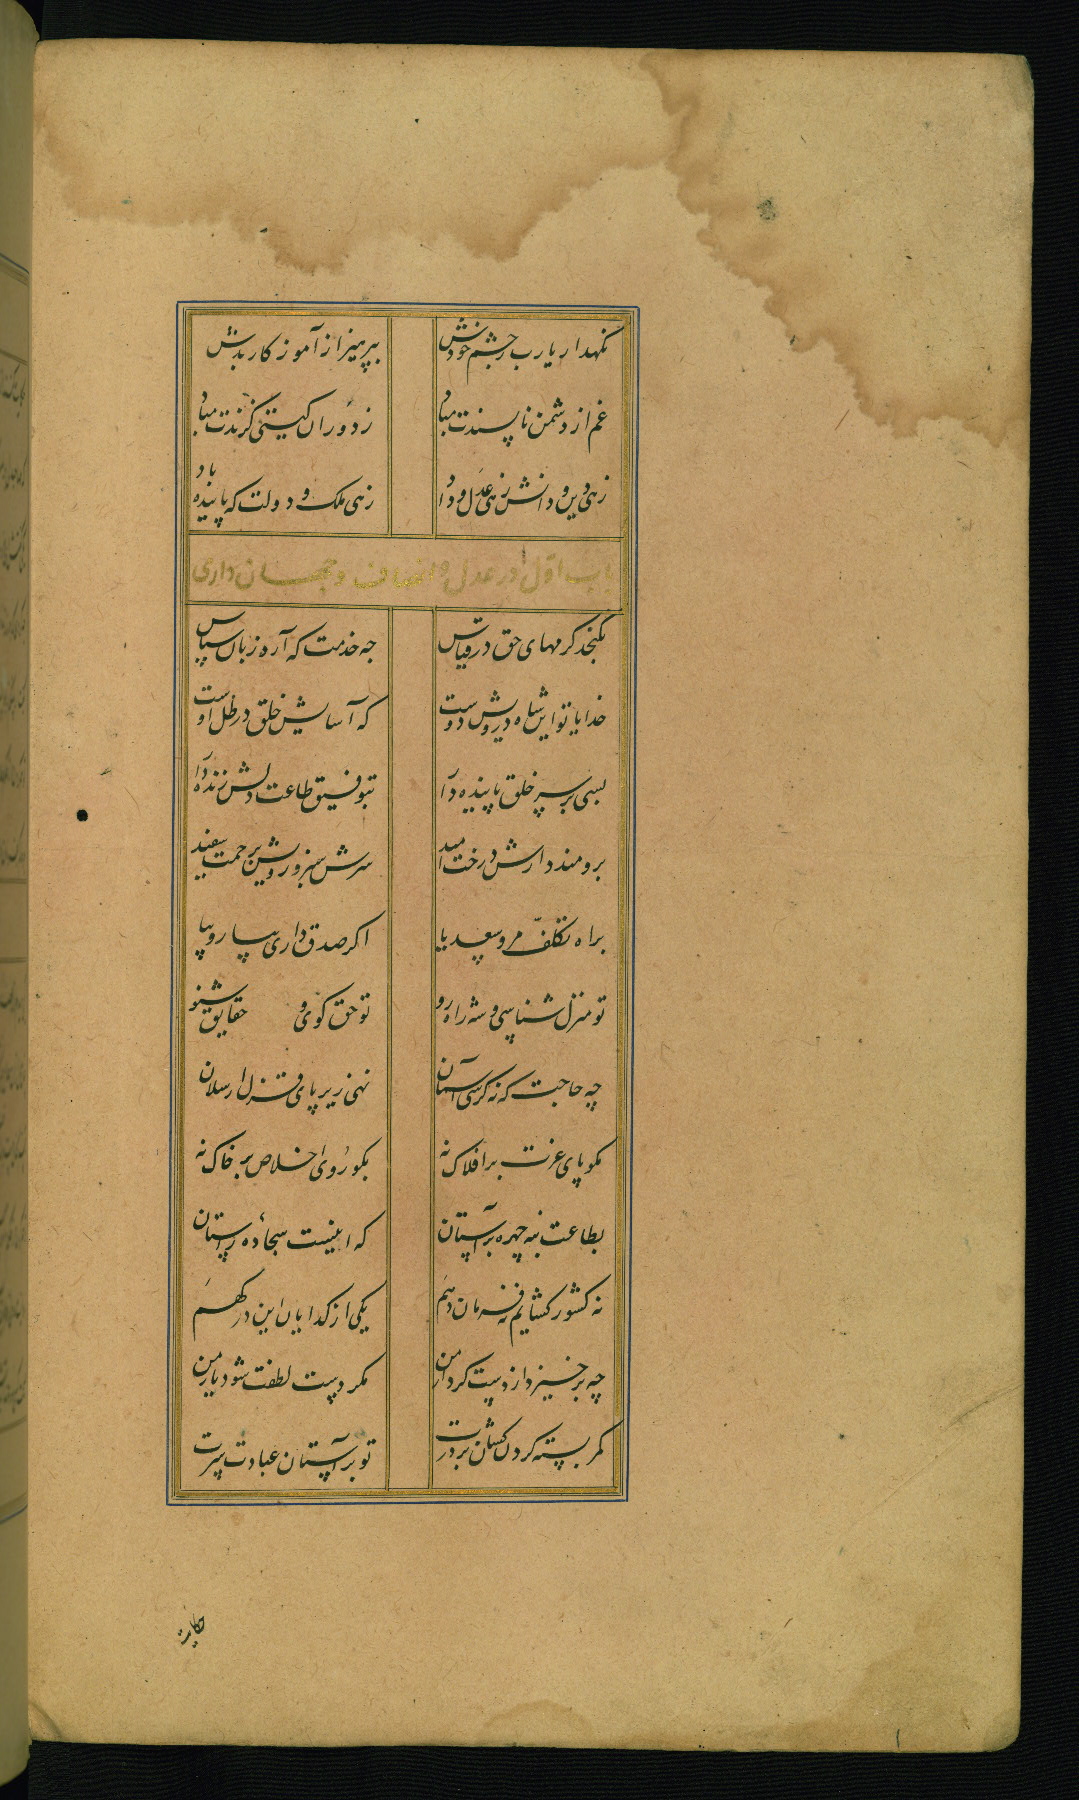 نگهدار یارب بچشم خودش بپرهیز از آموز کار بدش
غم از دشمن ناپسندت مباد ز دوران گیتی گزندت مباد
زهی دین و دانش زهی عدل و داد زهی ملک و دولت که پاینده باد
باب اول در عدل و انصاف و جهان داری
نکنجد کرمهای حق در قیاس چه خدمت که آرد زبان سپاس
خدایا تو این شاه درویش دوست که آسایش خلق در ظل اوست
بسی بر سر خلق پاینده دار بتوفیق طاعت دلش زنده دار
برومند دارش درخت امید سرش سبز و رویش برحمت سفید
براه تکلف مرو سعدیا اکر صدق داری بیار و بیا
تو منزل شناسی و شه راه رو تو حق کوی و حقایق شنو
چه حاجت که نه کرسی آسمان نهی زیر پای قزل ارسلان
مکو پای عزت بر افلاک نه بکو روی اخلاص بر خاک نه
بطاعت بنه چهره بر آستان که اینست سجاده راستان
نه کشور کشایم نه فرمان دهم یکی از کدایان این درکهم
چه برخیزد از دست کردار من مکر دست لطفت شود یار من
کمر بسته کردن کشان بر درت تو بر آستان عبادت سرت
حکایت